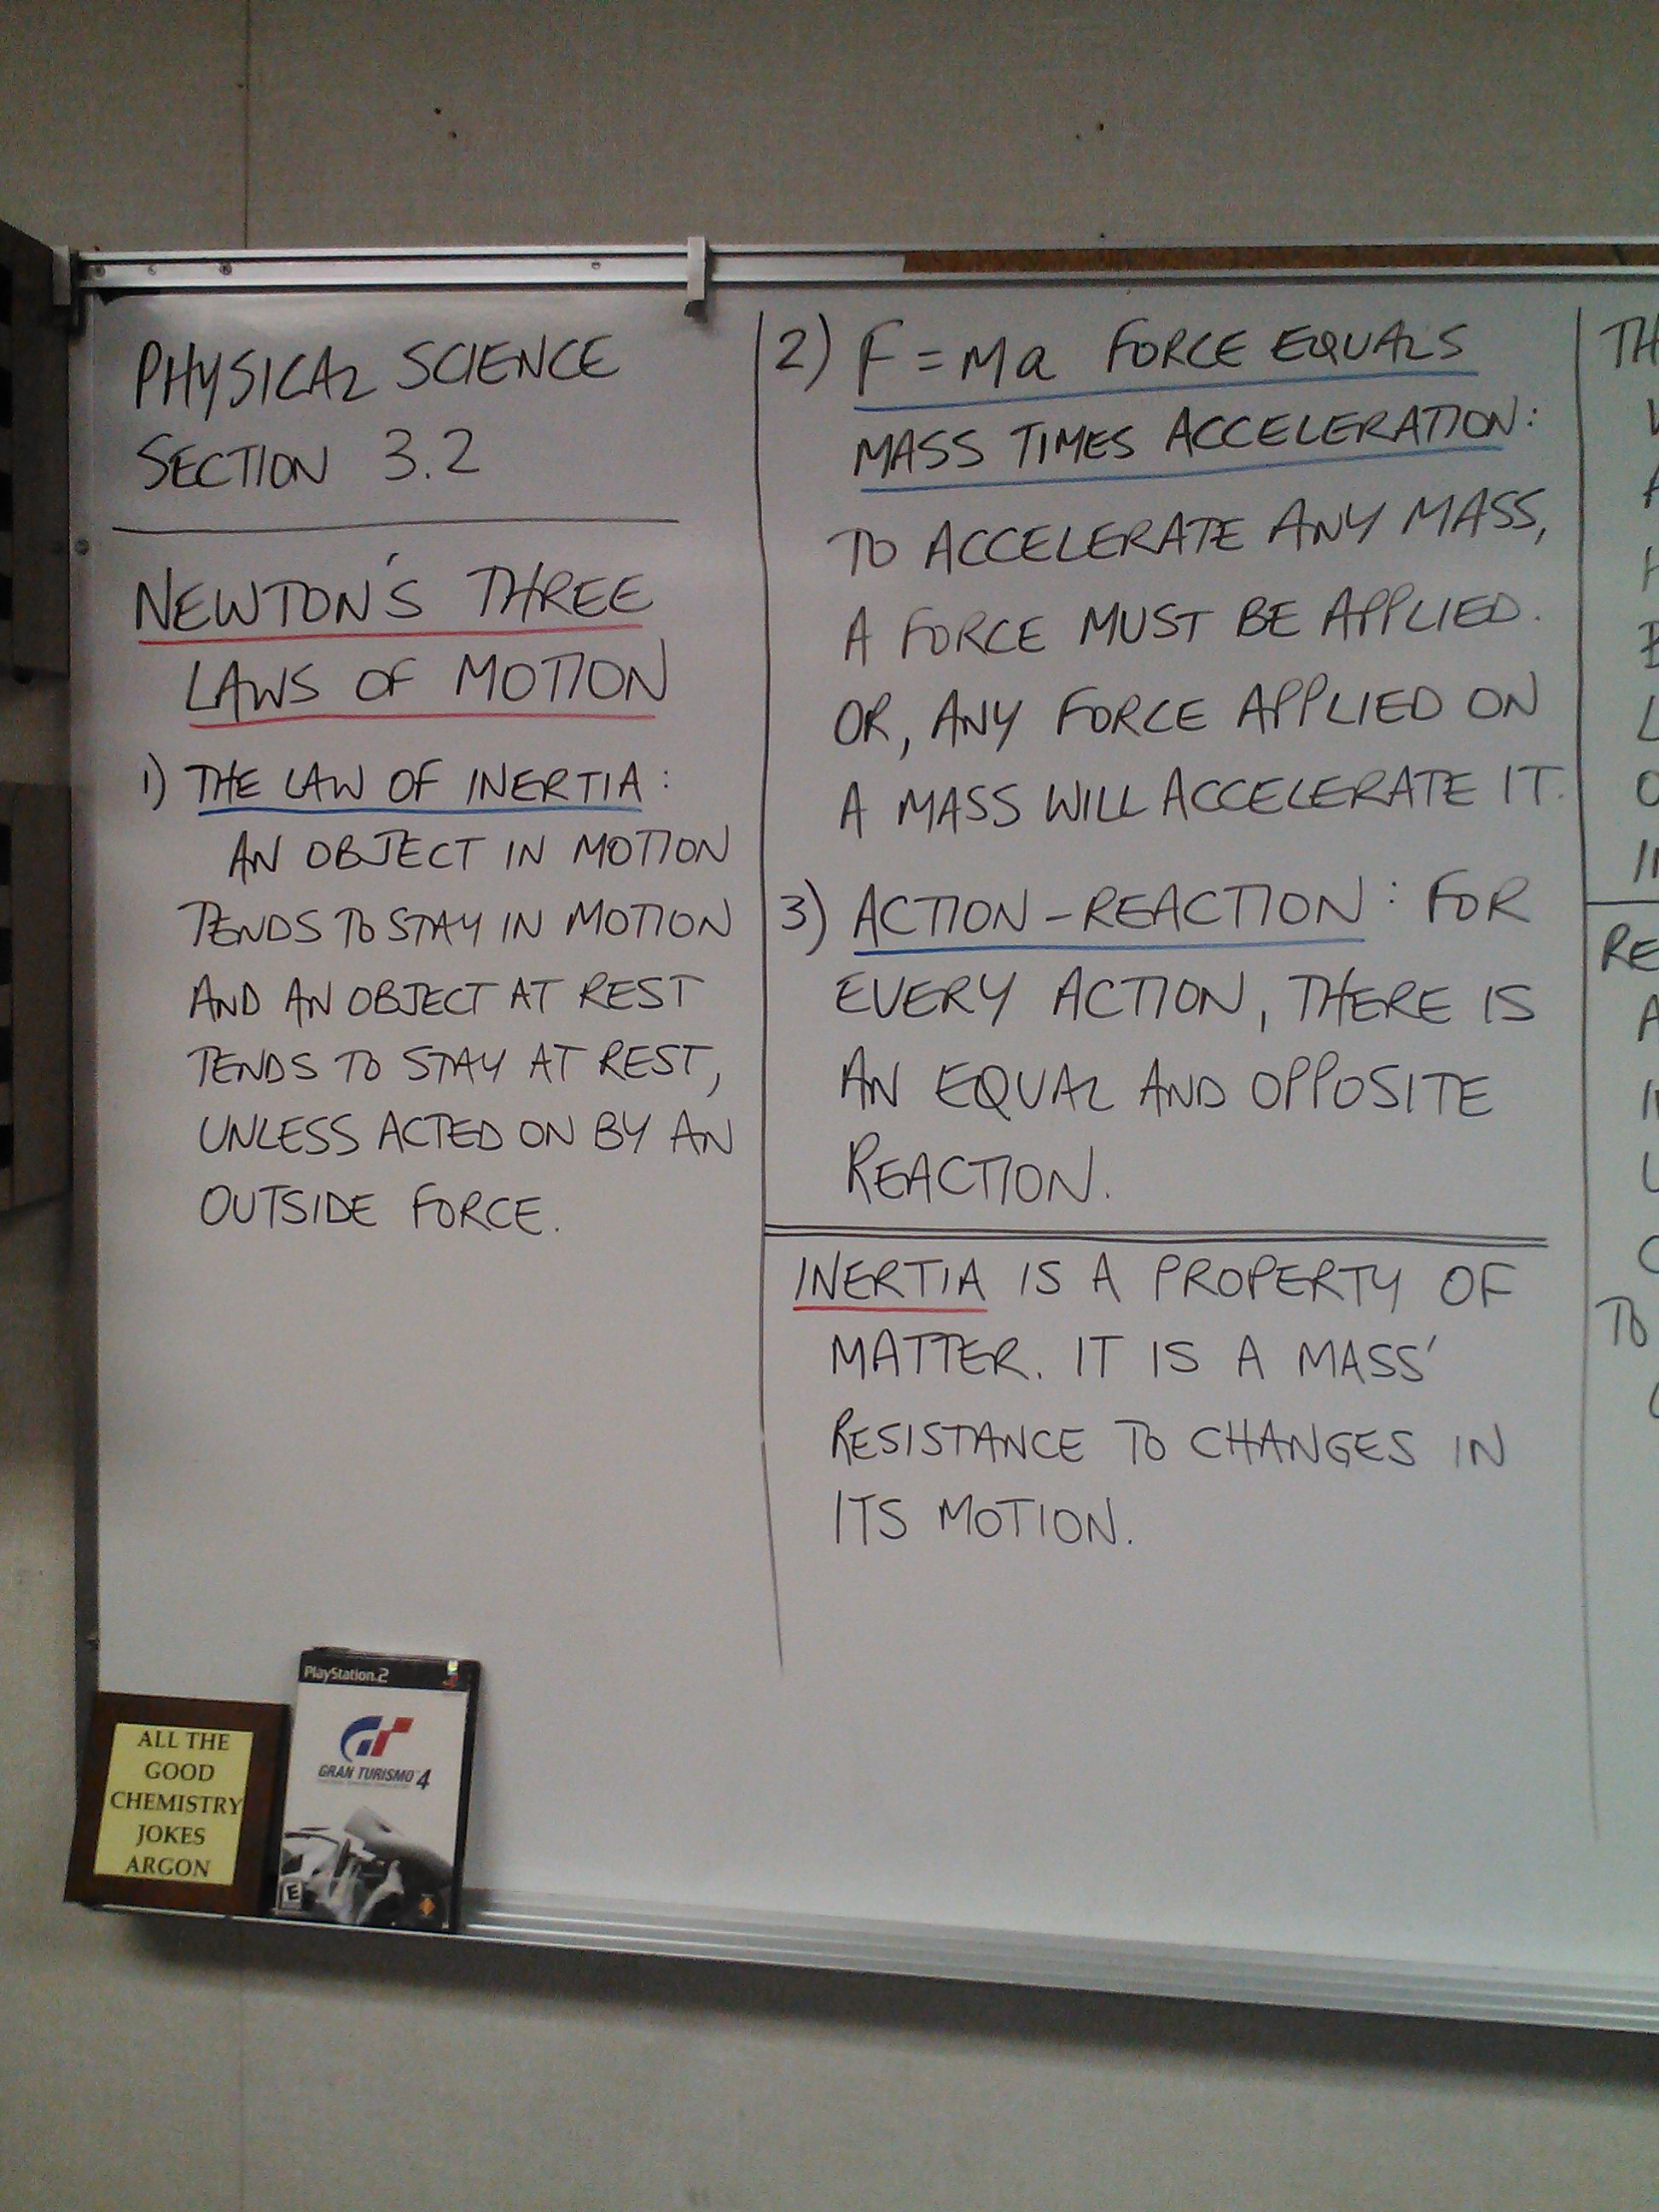 PHYSICAL SCIENCE
SECTION 3.2
NEWTON'S THREE
LAWS OF MOTION
1) THE LAW OF INERTIA:
AN OBJECT IN MOTION
TENDS TO STAY IN MOTION
AND AN OBJECT AT REST
TENDS TO STAY AT REST,
UNLESS ACTED ON BY AN
OUTSIDE FORCE.
2) F = Ma FORCE EQUALS
MASS TIMES ACCELERATION:
TO ACCELERATE ANY MASS,
A FORCE MUST BE APPLIED.
OR, ANY FORCE APPLIED ON
A MASS WILL ACCELERATE IT.
3) ACTION-REACTION: FOR
EVERY ACTION, THERE IS
AN EQUAL AND OPPOSITE
REACTION.
INERTIA IS A PROPERTY OF
MATTER. IT IS A MASS'
RESISTANCE TO CHANGES IN
ITS MOTION.
TO
ALL THE
GOOD
CHEMISTRY
JOKES
ARGON
PlayStation 2
GT
GRAN TURISMO 4
E